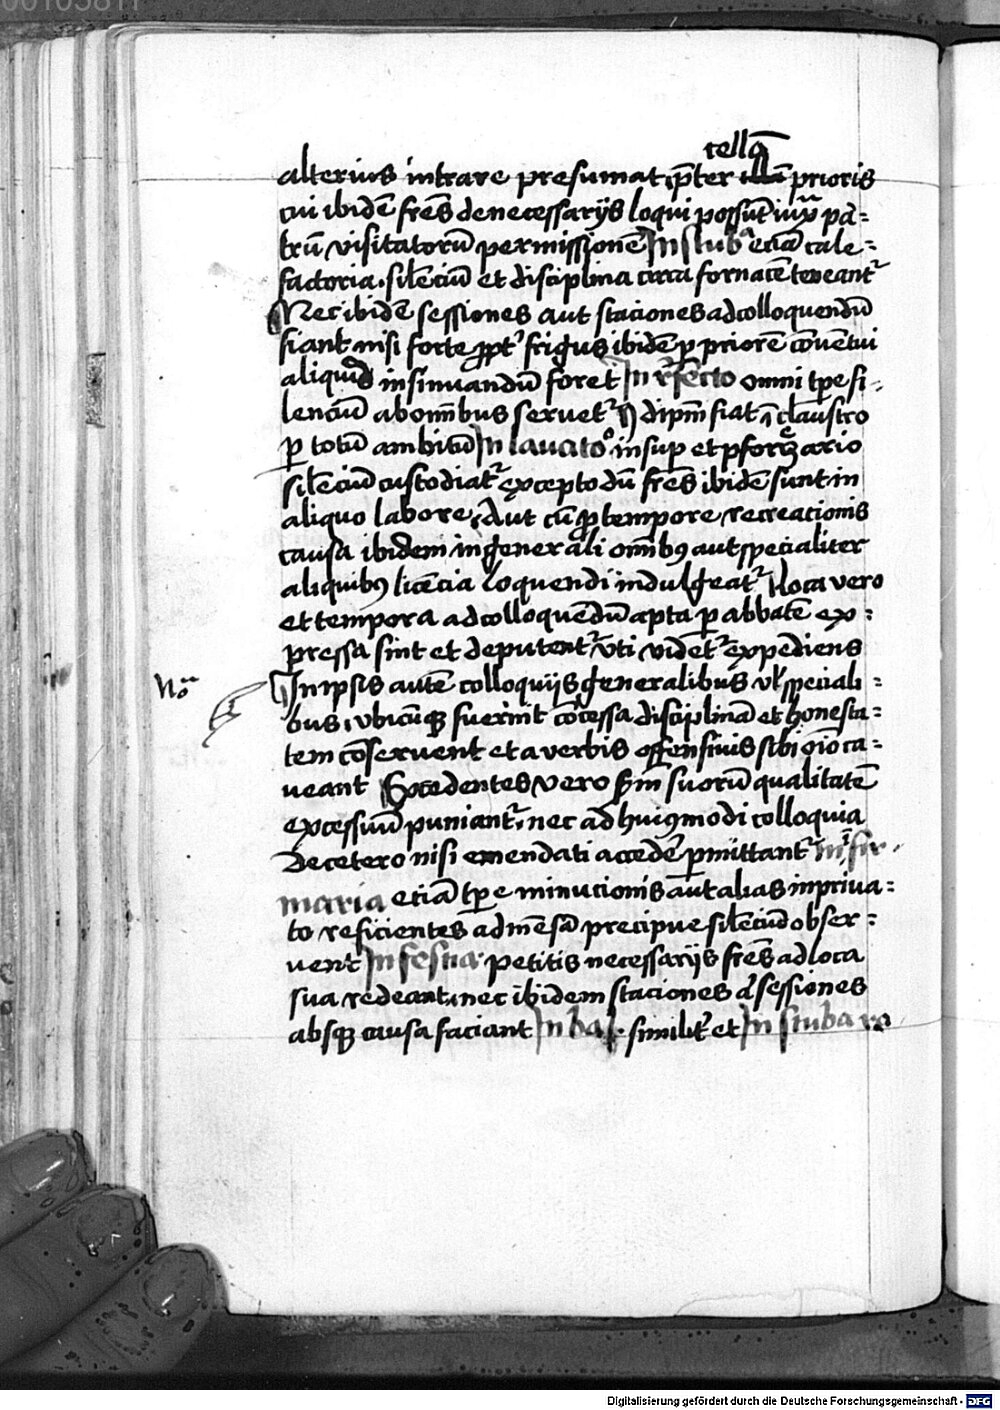 cellā
alterius intrare presumat, p̄ter prioris
cui ibidē frēs de necessarijs loqui possūt iuxͣ pa=
trū visitatorū permissionē In stubͣ eciā cale=
factoria. silēciū et disciplina circa fornacē teneantᷣ
Nec ibidē sessiones aut staciones ad colloquendū
fiant nisi forte ꝓptᷣ frigus ibidē ꝑ priorē cōventui
aliquid insinuandū foret In rᷣfecto omni tꝑe si=
lenciū ab om̄ibus servetᷣ dipm̄ fiat ī claustro
ꝑ totū ambitū In lauatoͦ insuꝑ et
silēciū custodiatᷣ excepto dū frēs ibidē sunt in
aliquo labore, Aut cū ꝓ tempore recreacionis
causa ibidem in generali om̄ibꝰ aut specialiter
aliquibꝰ licēcia loquendi indulgeatᷣ Loca vero
et tempora ad colloquēdū apta ꝑ abbatē ex=
pressa sint et deputentᷣ vti videtᷣ expediens
Nͣo
In ipsis autē colloquijs generalibus vl̓ speciali=
bus, vbicūqꝫ fuerint cōcessa disciplinā et honesta=
tem cōseruent et a verbis offensiuis sibi oīo ca=
ueant Excedentes vero scd̄m suorū qualitatē
excessuū puniantᷣ, nec ad huiꝰmodi colloquia
De cetero nisi emendati accedeᷣ ꝑmittantᷣ In īfir=
maria eciā tꝑe minucionis aut alias in priua=
to reficientes ad mēsā precipue silēciū obser=
uent In festia petitis necessarijs frēs ad loca
sua redeant, nec ibidem staciones aͨ sessiones
absqꝫ causa faciant In bal. similitᷣ et In stuba ra